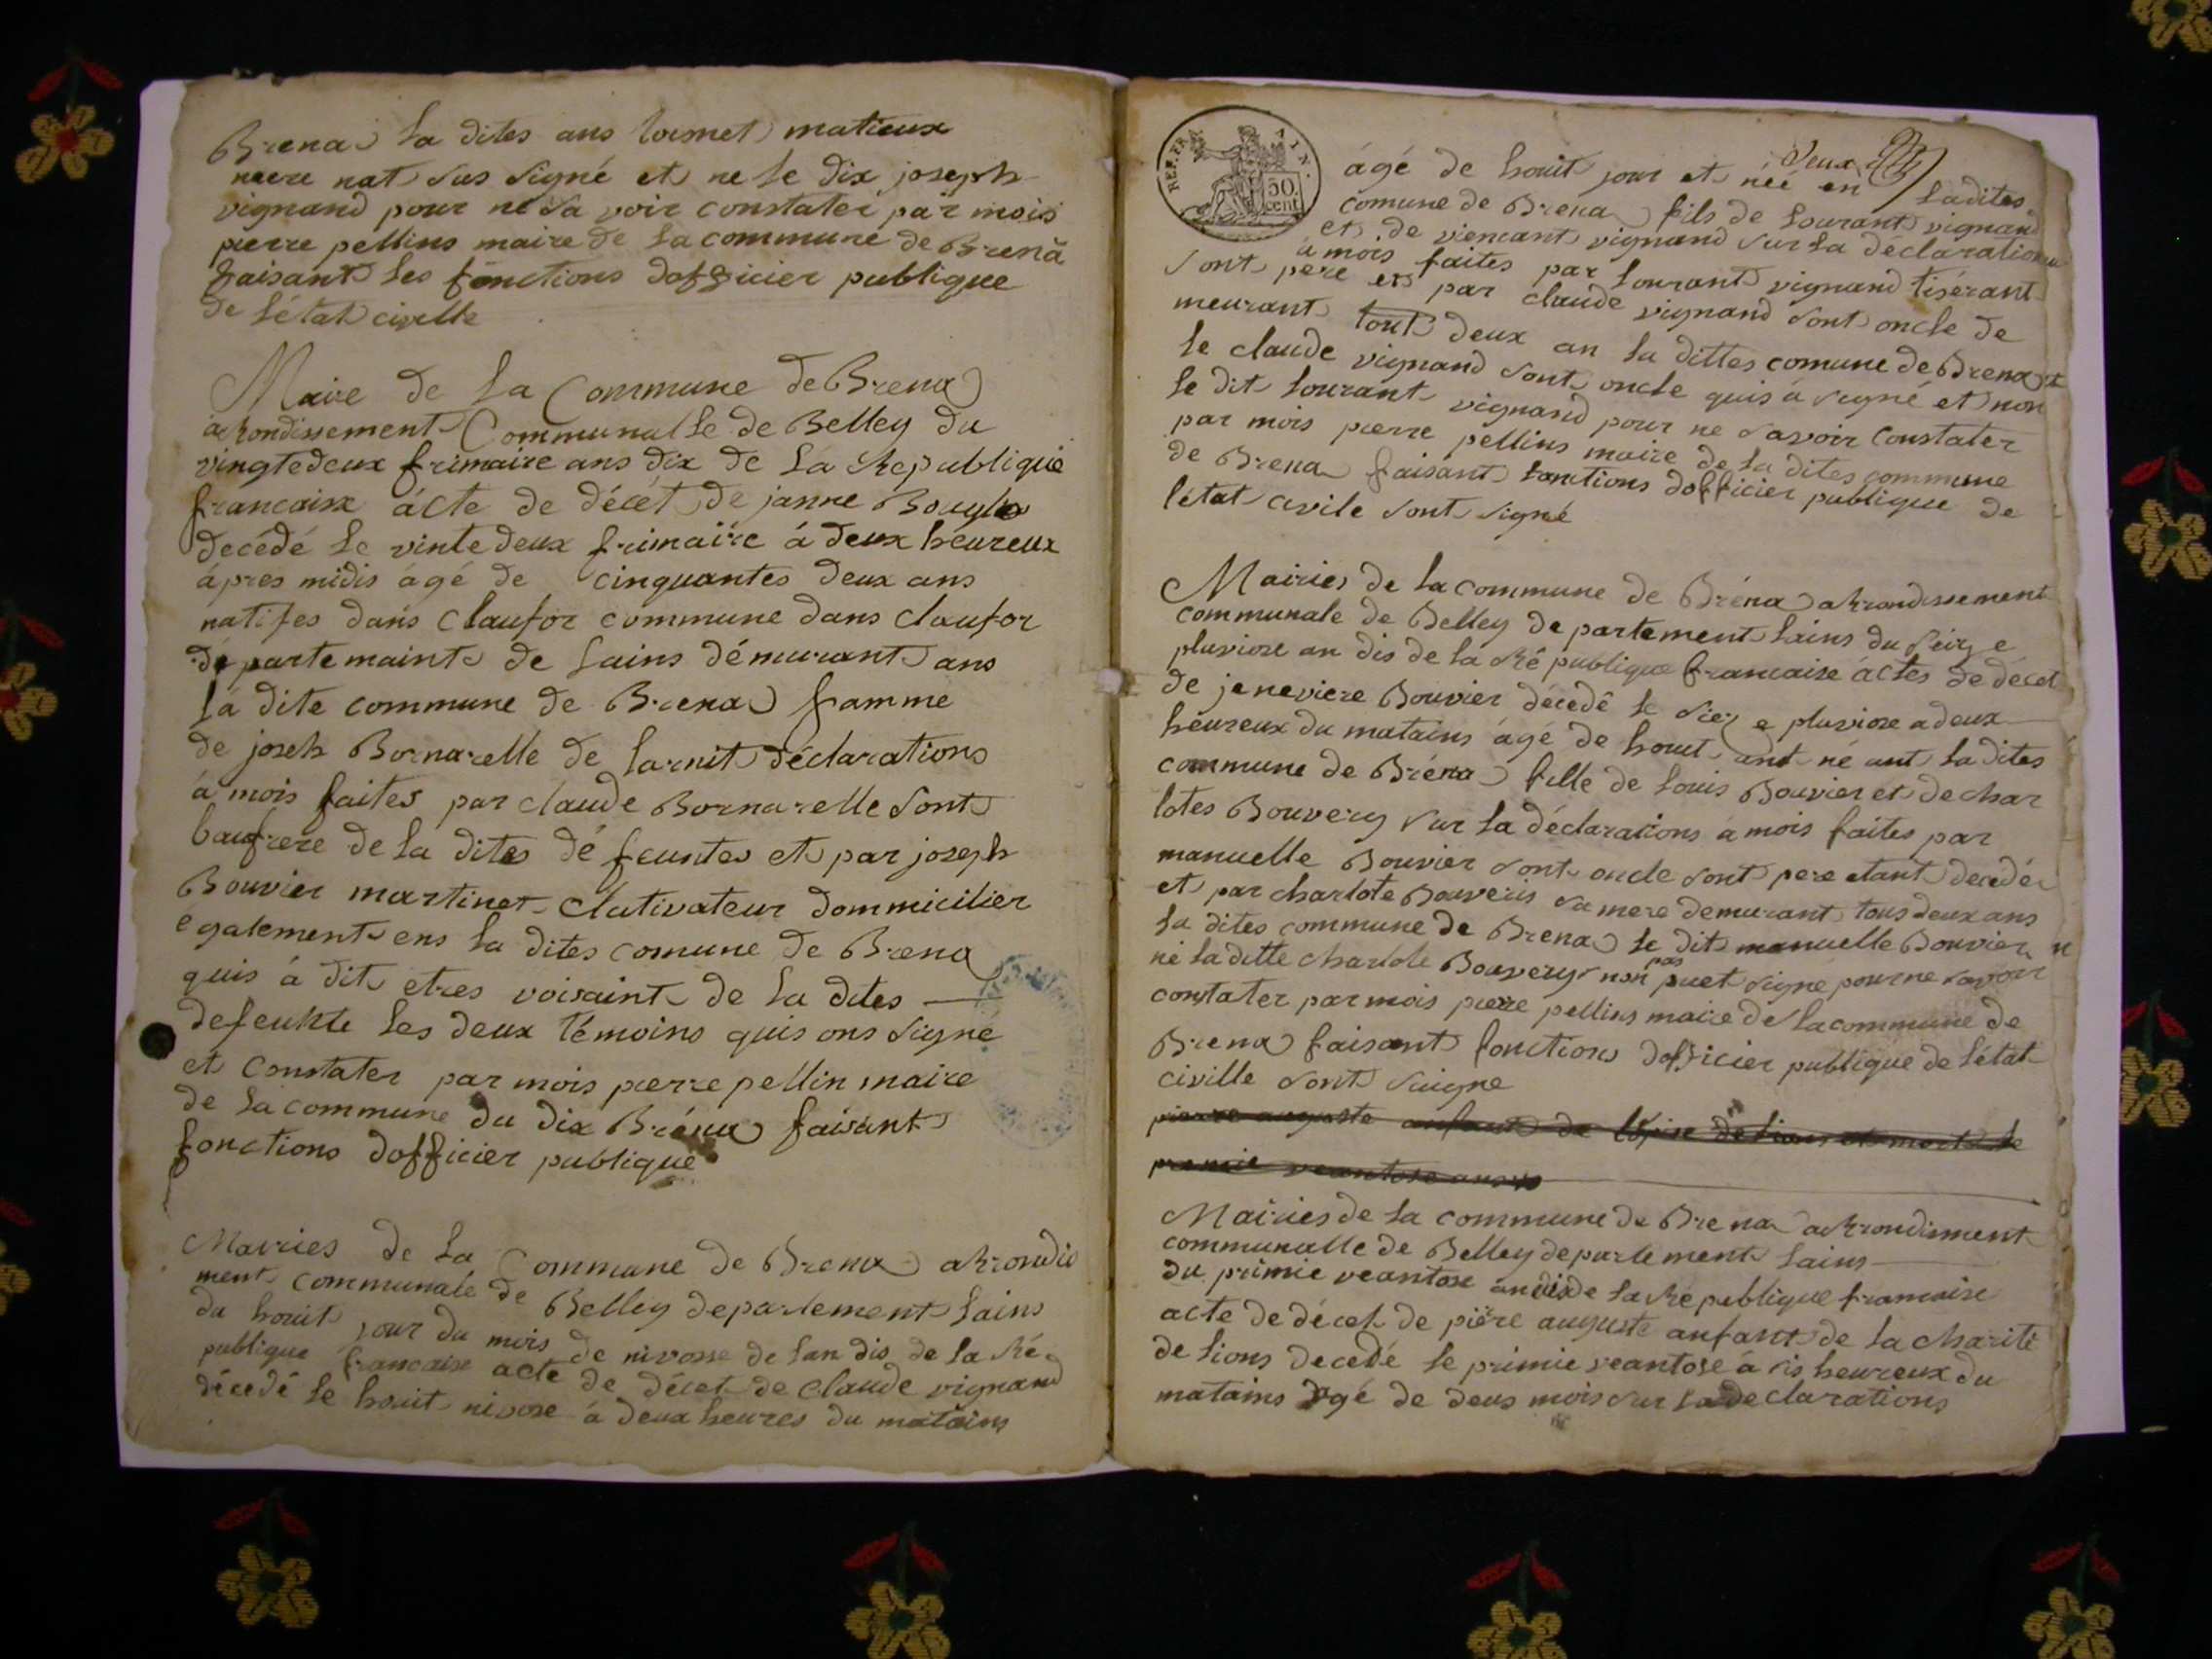 Brena la dites ans lormet matieux
neere nat sus signé et ne le dix joseph
vignand pour ne sa voir constater par mois
pierre pellins maire de la commune de Brena
faisant les fonctions dofficier publique
de létat civille
Maire de la Commune de Brena
arrondissement Communalle de Belley du
vingtedeux frimaire ans dix de la Republique
francaise acte de décét de janne Bougle
decédé le vinte deux frimaire á deux heureux
ápres midis ágé de cinquantes deux ans
natifes dans claufor commune dans claufor
départemainte de lains démeurant ans
la dite commune de Brena famme
de joseh Bornarelle de larnit déclarations
á mois faites par claude Bornarelle sont
baufrere de la dites défeuntes et par joseph
Bouvier martinet clutivateur dommicilier
egalement ens la dites comune de Brena
quis á dit etres voisaint de la dites
defeunte les deux témoins quis ons signe
et constater par mois pierre pellin maire
de la commune du dix Bréna faisant
fonctions dofficier publique
Mairies de la Commune de Brena arrondis
ment communale de Belley departement lains
du houit jour du mois de nivosse de lan dis de la Ré
publique francaise acte de décet de claude vignand
décedé le houit nivose á deux heures du matains
REP. FRA
AIN.
50
cent
deux
ágé de houit jour et néé en ladites
comune de Brena fils de lourant vignand
et de viencant vignand sur la déclarations
á mois faites par lourant vignand tisérant
sont pere et par claude vignand sont oncle de
meurant tout deux an la dittes comune de Brena et
le claude vignand sont oncle quis á signé et non
le dit lourant vignand pour ne savoir constater
par mois pierre pellins maire de la dites commune
de Brena faisant fonctions dofficier publique de
létat civile sont signé
Mairies de la commune de Bréna arrondissement
communale de Belley departement lains du seize
pluviose an dis de la République francaise áctes de décet
de jeneviere Bouvier décedê le siez e pluviose a deux
heureux du matains ágé de houit ant né ant la dites
commune de Bréna fille de louis Bouvier et de char
lotes Bouvery sur la déclarations á mois faites par
manuelle Bouvier sont oncle sont pere etant decedér
et par charlote Bouveris sa mere demurant tous deux ans
la dites commune de Brena le dit manuelle Bouvier n
né laditte charlote Bouvery non pas puet signe pour ne savoir
constater par mois pierre pellins maire de la commune de
Brena faisant fonctions dofficier publique de létat
civille sont saigne
pierre auguste anfant de de lions et mort le
premie veantose ans
Mairies de la commune de Brena arrondisment
communalle de Belley departement lains
du primie veantose an dis de la République francaise
acte de décet de piére auguste anfant de la charité
de lions decedé le primie veantose á sis heureux du
matains agé de deus mois sur la declarations